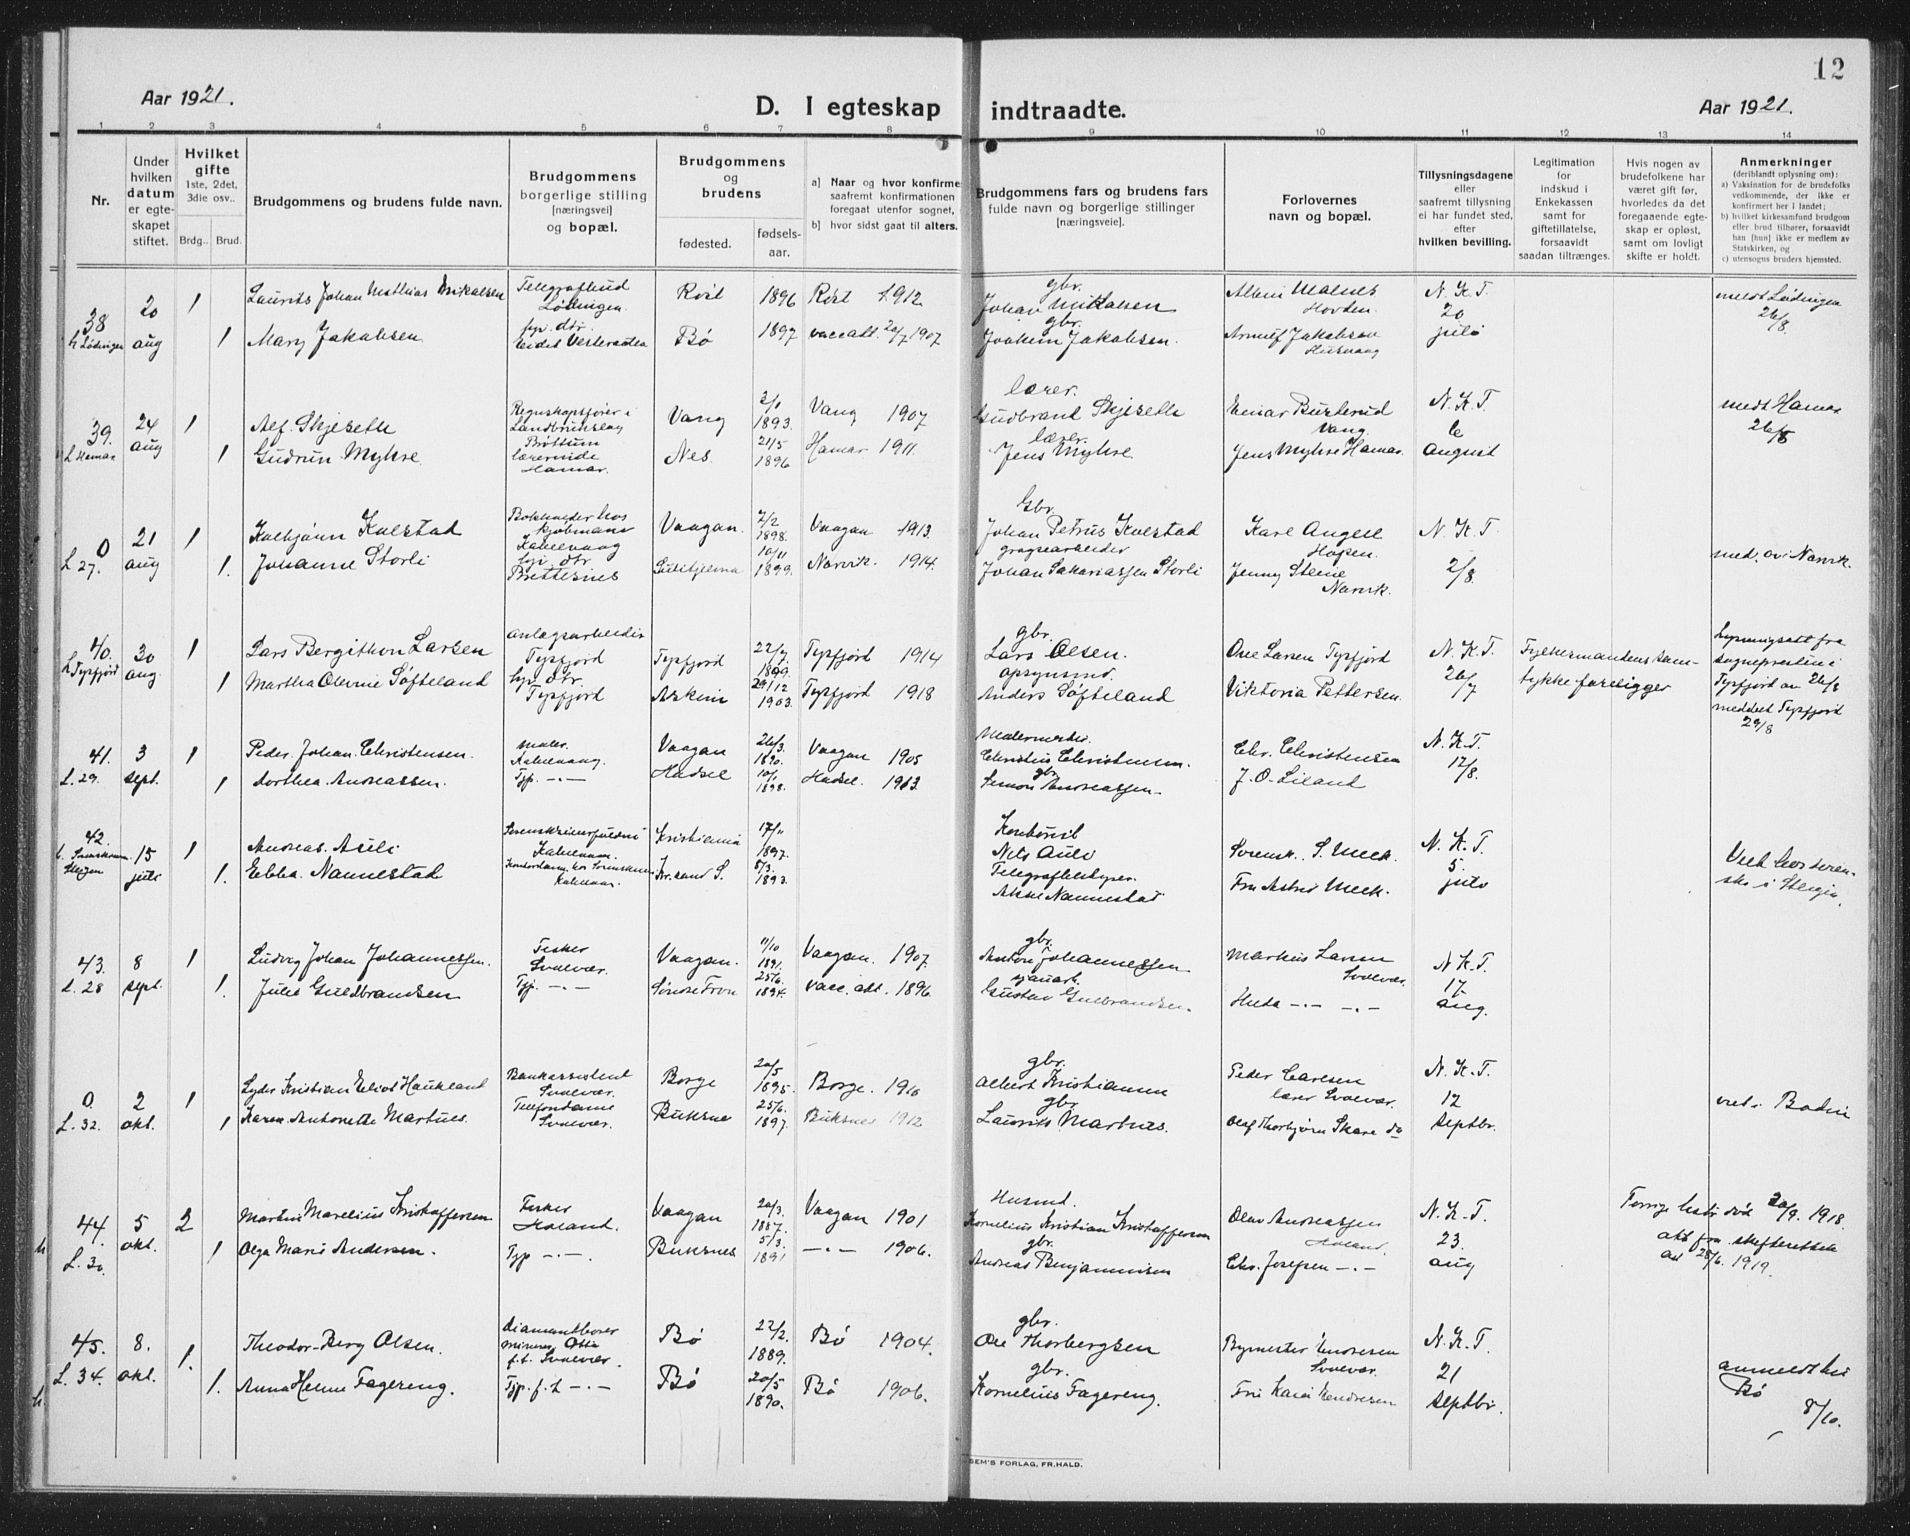 12
Aar 1921.
D. I egteskap indtraadte.
Aar 1921.
1 2 3 4 5 6 7 8 9 10 11 12 13 14
Nr.
Under hvilken datum er egteskapet stiftet.
Hvilket gifte 1ste, 2det, 3die osv.. Brdg.. Brud.
Brudgommens og brudens fulde navn.
Brudgommens borgerlige stilling [næringsvei] og bopæl.
Brudgommens og brudens fødested. fødselsaar.
a) Naar og hvor konfirme saafremt konfirmationen foregaat utenfor sognet,
b) hvor sidst gaat til alters.
Brudgommens fars og brudens fars fulde navn og borgerlige stillinger [næringsveie].
Forlovernes navn og bopæl.
Tillysningsdagene eller saafremt tillysning ei har fundet sted, efter hvilken bevilling.
Legitimation for indskud i Enkekassen samt for giftetillatelse, forsaavidt saadan tiltrænges.
Hvis nogen av brudefolkene har været gift før, hvorledes da det foregaaende egteskap er opløst, samt om lovligt skifte er holdt.
Anmerkninger (deriblandt oplysning om): a) Vaksination for de brudefolks vedkommende, der ikke er konfirmert her i landet; b) hvilket kirkesamfund brudgom eller brud tilhører, forsaavidt han [hun] ikke er medlem av Statskirken, og c) utensogns bruders hjemsted.
38 Lødingen 20 aug 1 Laurits Johan Mathias Mikalsen Telegrafbud Lødingen. Røst 1896 Røst 1912 gbr. Johan Mikkalsen Albin Malnes Hovden. N. K. T. 20 juli meldt Lødingen 26/8.
1 Mary Jakobsen Eidet Vesteraalen Bø 1897 vacc att. 20/7 1907 gbr. Joakim Jakobsen. Arnulf Jakobsen
39. L Hamar 24 aug 1 Alf. Skjeseth Regnskapsfører i Landbrukslag Brøttum Vang 2/1 1893. Vang 1907 lærer. Gudbrand Skjeseth Einar Burterud Vang. N. K. T. 6 August medt Hamar 26/8
1 Gudrun Myhre. lærerinde Hamar. Nes 21/5 1896 Hamar 1911. lærer. Jens Myhre Jens Myhre Hamar.
0 L 27. 21 aug 1 Kolbjørn Kulstad Bokholder hos kjøbmand Kabelvaag Vaagan. 7/2 1898. Vaagan 1913. Gbr. Johan Petrus Kulstad Karl Angell Hopen. N. K. T. 2/8. med. av Narvik.
1. Johanne Storli Brettesnes Sulitjelma 10/11 1899. Narvik. 1914. Johan Sakariassen Storli Jenny Steene Narvik.
40. L Tysfjord 30 aug. 1 Lars Bergithon Larsen Anlægsarbeider Tysfjord Tysfjord 22/7 1899. Tysfjord 1914 gbr. Lars Olsen. Ole Larsen Tysfjord N. K. T 26/7 Fylkesmandens samtykke foreligger Lysningsatt fra sognepresten i Tysfjord av 26/8 meddelt Tysfjord 29/8
1 Martha Olevine Softeland Tysfjord Askim 29/12 1903. Tysfjord 1918 opsynsmd. Anders Softeland Viktoria Pettersen.
41. L. 29. 3 sept. 1 Peder Johan Christensen. maler. Kabelvaag. Vaagan 26/3. 1890. Vaagan 1905 Malermester. Christius Christensen. Chr. Christensen N. K. T. 12/8.
1 Dorthea Andreassen. Tjp. -„- Hadsel 10/1 1898. Hadsel. 1913. gbr. Simon Andreassen J. O. Liland
42. Steigen 15 juli 1 Andreas. Auli Kabelvaag. Kristiania 17/11 1897. Nils Auli Sorensk. S. Meek. N. K. T. 5. julo
1. Ebba. Nannestad Kabelvaag. Kr.sand S. 8/3. 1893. Nannestad Fru Astrid Meek.
43. L. 28 8 sept. 1 Ludvig Johan Johannessen. Fisker Svolvær. Vaagan. 11/10 1891. Vaagan. 1907. gbr. Anton Johannessen Markus Larsen Svolvær. N K. T. 17 aug.
1. Julie Guldbrandsen Tjp. -„- Søndre Fron 25/6. 1894. Vacc. att. 1896. Gustav Gulbrandsen. Hulda -„- -„-
0. L. 32. 2 okt. 1 Lyder Kristian Elias Haukland Bankassistent Svolvær. Borge 20/5 1895. Borge. 1910 gbr. Albert Kristiansen Peder Carlsen lærer Svolvær. N. K. T. 12 septbr. viet i Bodin
1 Karen Antonette Martnes. Telefondame Svolvær. Buksnes 25/6. 1897. Buksnes 1912 gbr. Laurits Martnes. Olaf Thorbjørn Skare do
44. L. 30. 5 okt. 2 Martin Marelius Kristoffersen Fisker Holand. Vaagan 20/3. 1887. Vaagan 1901 Husmd. Kornelius Kristian Kristoffersen Olav Andreassen Holand. N. K. T. 23. aug Forrige hustr død 20/9. 1918. att fra skifteretten ad 28/6. 1919.
1 Olga Marie Andersen. Tjp -„- Buksnes 5/3. 1891 -„- 1906. gbr. Andreas Benjaminsen Chr. Josefsen -„-
45. L. 34. 8. okt. 1. Theodor Berg Olsen. diamantborer f.t. Svolvær. Bø 22/2. 1889. Bø 1904. gbr. Ole Thorbergsen Bymester Endresen Svolvær. N. K. T. 21 septbr. anmeldt hr Bø 8/10.
1. Anna Helene Fagereng. Tjp. f. t -„- Bø 20/5 1890. Bø 1906. gbr. Kornelius Fagereng. Fru Kaia Endresen
SEM'S FORLAG, FR. HALD.